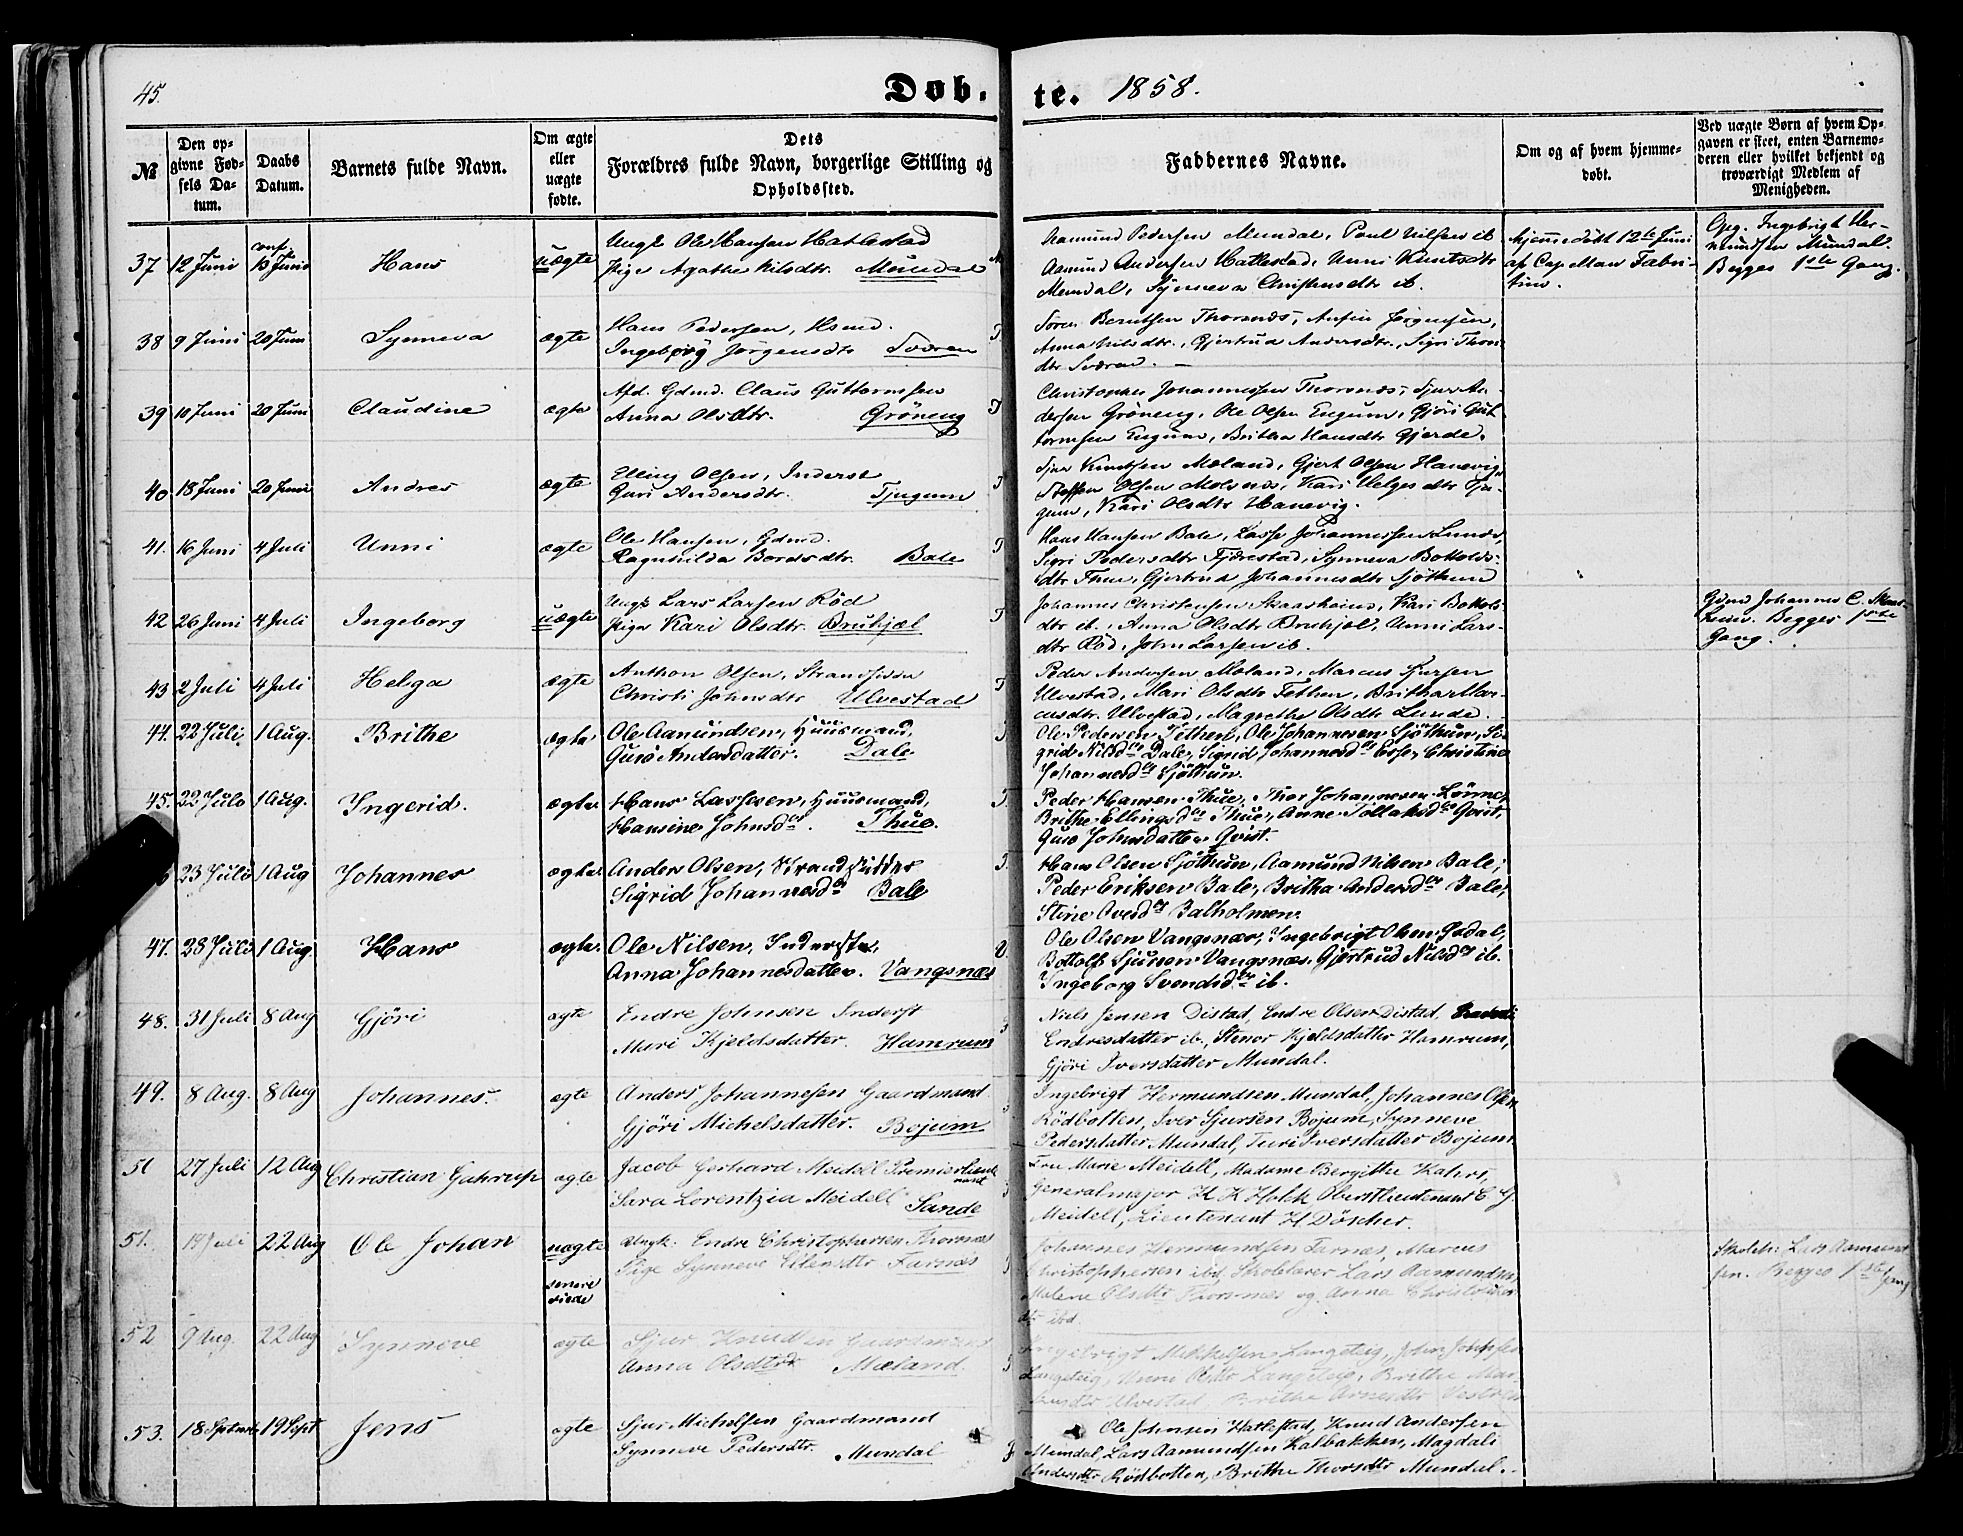 45.
Døb.
te. 1858.
№
Den op-
givne Fød-
sels Da-
tum.
Daabs
Datum.
Barnets fulde Navn.
Om ægte
eller
uægte
fødte.
Dets
Forældres fulde Navn, borgerlige Stilling og
Opholdssted.
Faddernes Navne.
Om og af hvem hjemme-
døbt.
Ved uægte Børn af hvem Op-
gaven er skeet, enten Barnemo-
deren eller hvilket bekjendt og
troværdigt Medlem af
Menigheden.
37 12 Juni conf. 13 Juni Hans uægte
Ungk Ole Hansen Hatlestad
Pige Agathe Nilsdtr. Mundal
Aamund Pedersen Mundal, Poul Nilsen ib
Aamund Andersen Hatlestad, Unni Knutsdtr
Mundal, Synneva Christensdtr ib.
hjemmedöbt 12te Juni
af Cap Maw Fabri-
tius.
Opg. Ingebrigt Her-
mundsen Mundal.
Begges 1ste Gang.
38 9 Juni 20 Juni Synneva ægte
Hans Pedersen, Hsmd.
Ingebörg Jörgensdtr Sværen
Sören Berntsen Thorsnæs, Ansin Jörgensen,
Anna Nilsdtr., Gjertrud Andersdtr., Sigri Thors-
dtr Sværen. —
39 10 Juni 20 Juni Claudine ægte
Afd. Gdmd. Claus Guttormsen
Anna Olsdtr. Gröneng
Christopher Johannessen Thorsnæs, Sjur An-
dersen Gröneng, Ole Olsen Engum, Gjöri Gut-
tormsen Engum, Britha Hansdtr Gjerde.
40 18 Juni 20 Juni Andres ægte
Elling Olsen, Inderst
Guri Andersdtr. Tjugum
Sjur Knutsen Mæland, Gjert Olsen Hanevig,
Steffen Olsen Molsnæs, Kari Helgesdtr Tju-
gum, Kari Olsdtr Hanevig.
41. 16 Juni 4 Juli Unni ægte
Ole Hansen, Gdmd.
Ragnhilda Bordsdtr. Bale
Hans Hansen Bale, Lasse Johannessen Lunde,
Sigri Pedersdtr Fjærestad, Synneva Bottolvs-
dtr Thue, Gjertrud Johannesdtr Sjöthun
42 26 Juni 4 Juli Ingeborg uægte
Ungk Lars Larsen Röd
Pige Kari Olsdtr. Bruhjæl
Johannes Christensen Skaasheim, Kari Bottols-
dtr ib., Anna Olsdtr Bruhjæl, Unni Lars-
dtr Röd, John Larsen ib.
Gdmd Johannes C. Skaas-
heim. Begges 1ste
Gang.
43 2 Juli 4 Juli Helga ægte
Anthon Olsen, Strandsidder
Christi Johnsdtr Ulvestad
Peder Andersen Mæland, Marcus Sjursen
Ulvestad, Mari Olsdtr Tethen, Britha Mar-
cusdtr. Ulvestad, Magrethe Olsdtr Lunde.
44. 22 Juli. 1 Aug. Brithe ægte
Ole Aamundsen, Huusmand,
Guro Andersdatter. Dale
Ole Pedersen Tethen, Ole Johannesen Sjöthun, Si-
grid Nilsdtr Dale, Sigrid Johannesdtr Esse, Christine
Johannesdtr Sjöthun.
45. 22 Juli 1 Aug. Ingerid. ægte
Hans Lassesen, Huusmand,
Hansine Johnsdtr. Thue.
Peder Hansen Thue, Thor Johannesen Lönne,
Brithe Ellingsdtr Thue, Anne Tollaksdtr Qvist,
Guro Johnsdatter Qvist.
23 Juli 1 Aug Johannes ægte
Anders Olsen, Strandsidder
Sigrid Johannesdtr Bale
Hans Olsen Sjöthun, Aamund Nilsen Bale,
Peder Eriksen Bale, Britha Andersdtr Bale,
Stine Ovesdtr Balholmen.
47. 28 Juli 1 Aug. Hans ægte
Ole Nilsen, Inderste,
Anna Johannesdatter. Vangsnæs
Ole Olsen Vangsnæs, Ingebrigt Olsen Indal,
Bottolf Sjursen Vangsnæs, Gjertrud Nilsdtr ib.
Ingeborg Svendsdtr ib.
48. 31 Juli 8 Aug Gjöri ægte
Endre Johnsen Inderst
Mari Kjeldsdatter. Hamrum
Niels Jensen Distad, Endre Olsen Distad,
Endresdatter ib., Stenor Kjeldsdatter Hamrum,
Gjöri Iversdatter Mundal.
49. 8 Aug. 8 Aug Johannes. ægte
Anders Johannesen Gaardmand
Gjöri Michelsdatter. Bojum
Ingebrigt Hermundsen Mundal, Johannes Olsen
Rödbotten, Iver Sjursen Bojum, Synneve
Pedersdatter Mundal, Turi Iversdatter Bojum
51 27 Juli 12 Aug Christian Gahrup ægte
Jacob Gerhard Meidell Premierlieut-
nant
Sara Lorentzia Meidell Sande
Fru Marie Meidell, Madame Bergithe Kahrs,
Generalmajor H K Holck Oberstlieutenant C G
Meidell, Lieutenant H Döscher.
51. 14 Juli 22 Aug Ole Johan uægte
senere
viede
Ungk. Endre Christophersen Thorsnæs
Pige Synneve Eilensdtr Farnæs
Johannes Hermundsen Farnæs, Marcus
Christophersen ibd, Skolelærer Lars Aamundsen,
Malene Olsdtr Thorsnæs og Anna Christopher-
dtr ibd.
Skolelr. Lars Aamund-
sen. Begges 1ste Gang
52 9 Aug. 22 Aug Synneve ægte
Sjur Knudsen Gaardmand
Anna Olsdtr Mæland.
Ingebrigt Michelsen Langeteig, John Johnsen
Langeteig, Unni Olsdtr Langeteig, Brithe Mar-
cusdtr Ulvestad, Brithe Arnesdtr
53. 18 Septmbr 19 Sept Jens ægte
Sjur Michelsen Gaardmand
Synneve Pedersdtr. Mundal
Ole Johnsen Hatlestad, Knud Andersen
Mundal, Lars Aamundsen Kalbakken, Magdali
Andersdtr Rödbotten, Brithe Thorsdtr Mundal.